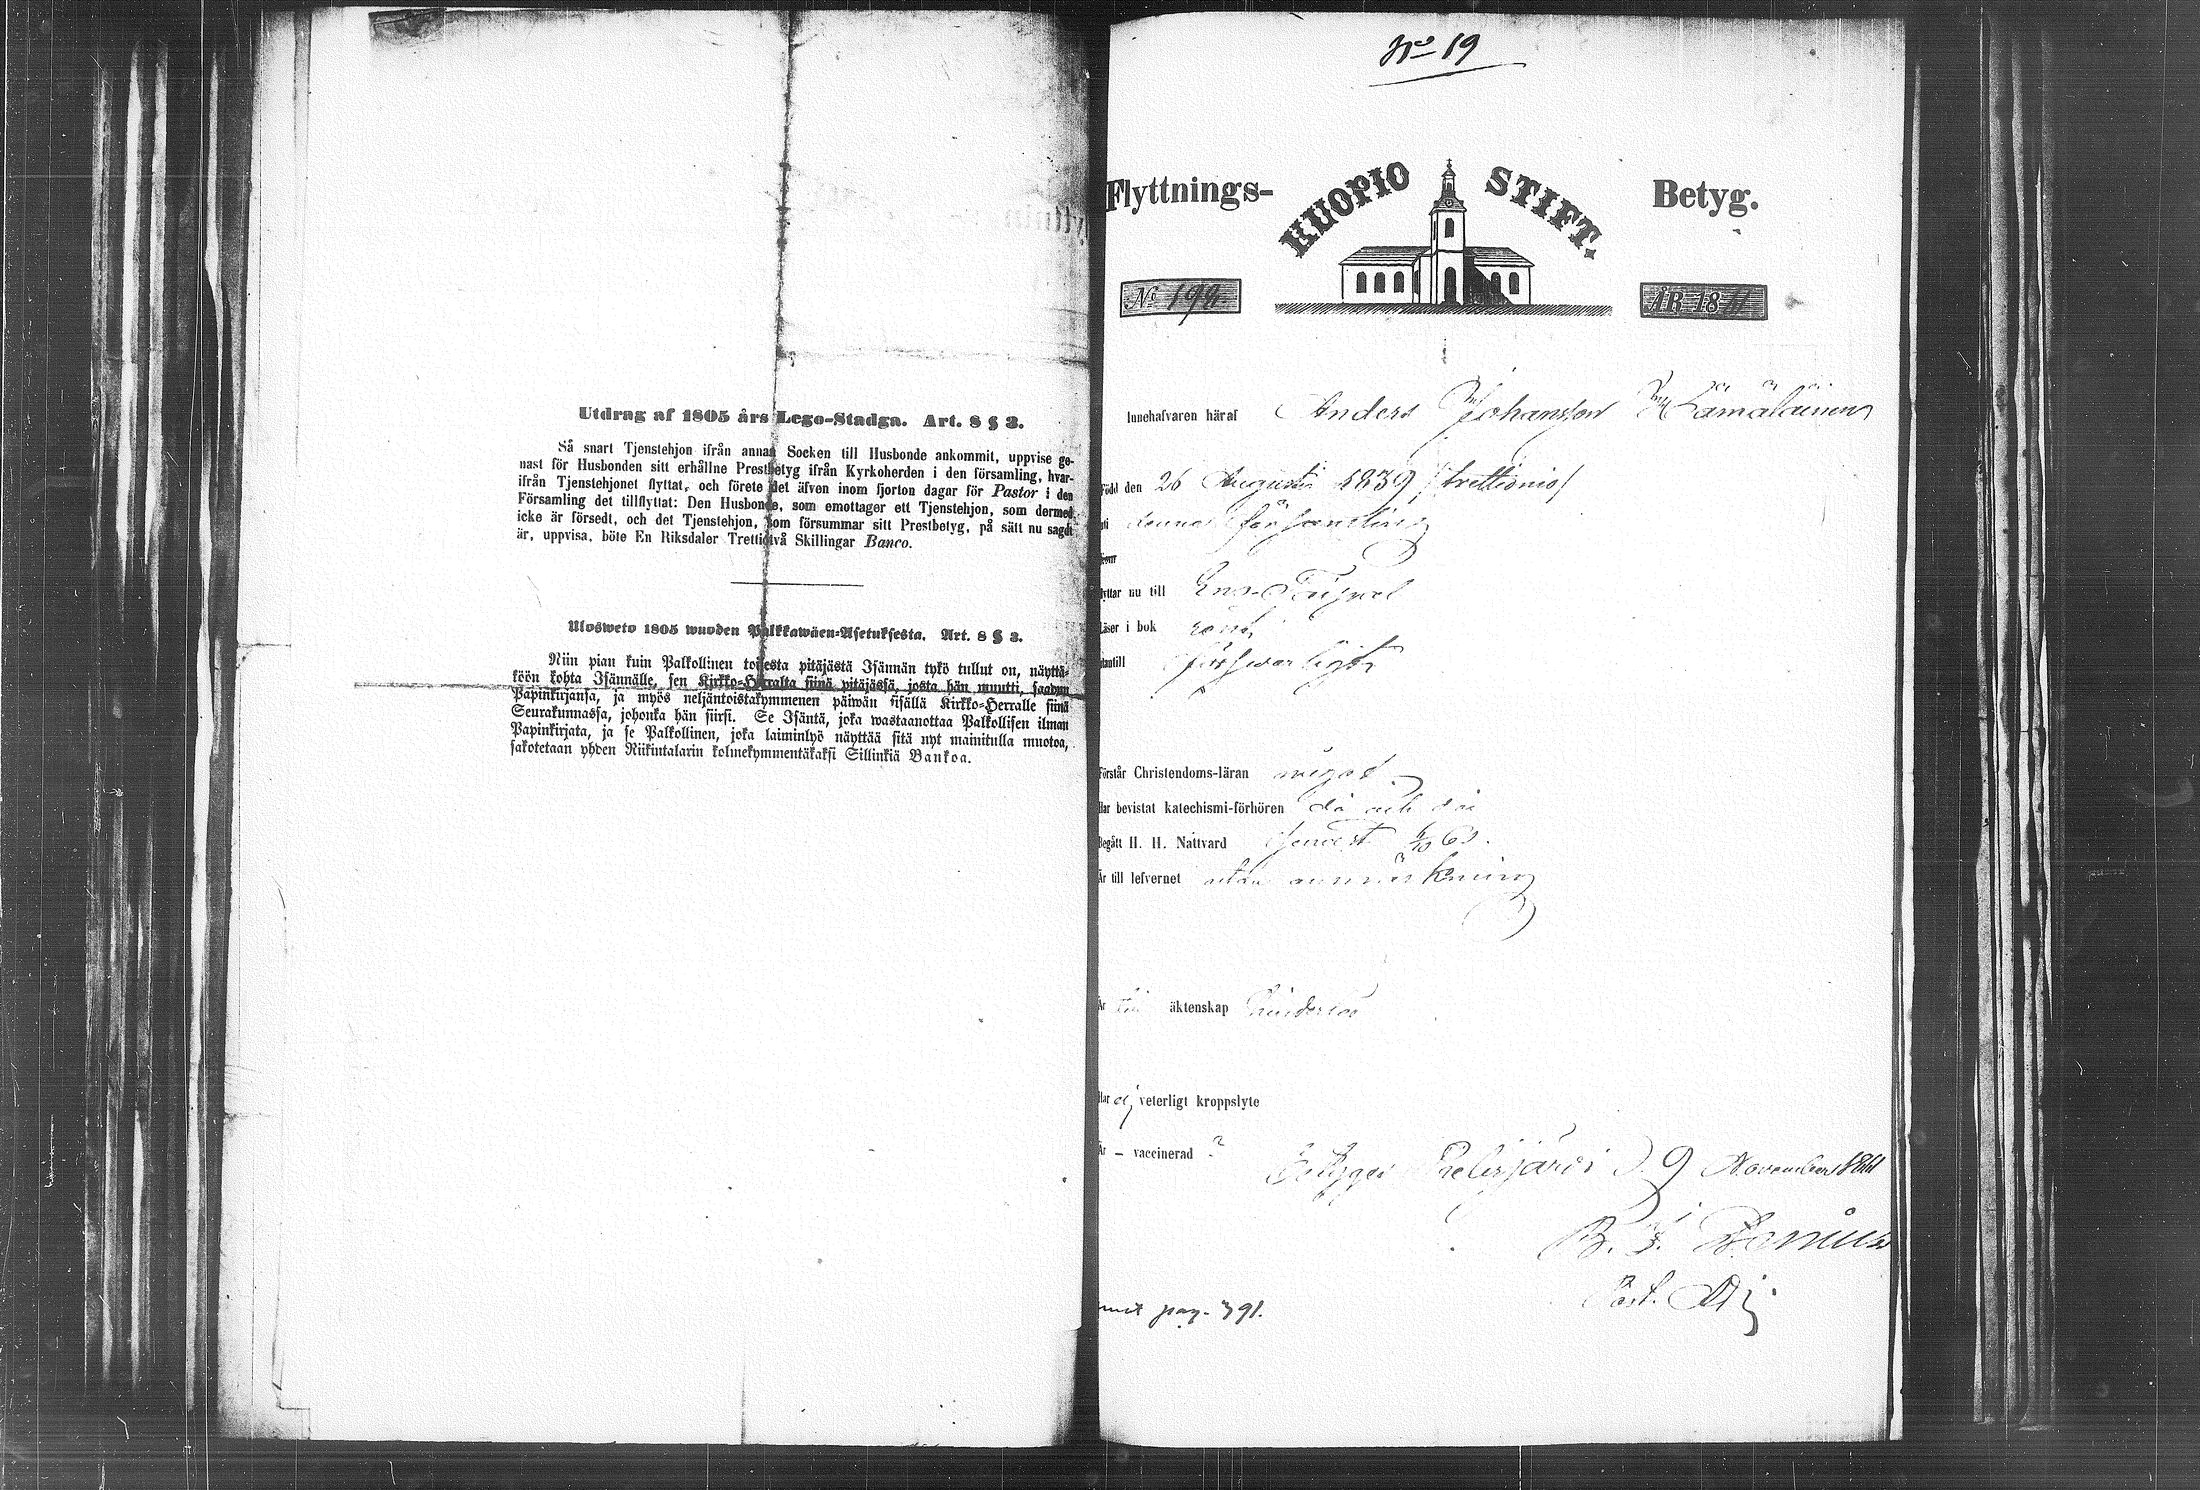 Utdrag af 1805 års Lego-Stadga. Art. 8 § 3.
Så snart Tjenstehjon ifrån annan Socken till Husbonde ankommit, uppvise ge-
nast för Husbonden sitt erhållne Prestbetyg ifrån Kyrkoherden i den församling, hvar-
ifrån Tjenstehjonet flyttat, och förete det äfven inom fjorton dagar för Pastor i den
Församling det tillflyttat: Den Husbonde, som emottager ett Tjenstehjon, som dermed
icke är försedt, och det Tjenstehjon, som försummar sitt Prestbetyg, på sätt nu sagdt
är, uppvisa, böte En Riksdaler Trettiotvå Skillingar Banco.
Ulosweto 1805 wuoden Palkkawäen-Asetuksesta. Art. 8 § 3.
Niin pian kuin Palkollinen toisesta pitäjästä Isännän tykö tullut on, näyttä-
köön kohta Isännälle, sen Kirkko-Herralta siinä pitäjässä, josta hän muutti, saadun
Papinkirjansa, ja myös neljäntoistakymmenen päiwän sisällä Kirkko-Herralle siinä
Seurakunnassa, johonka hän siirsi. Se Isäntä, joka wastaanottaa Palkollisen ilman
Papinkirjata, ja se Palkollinen, joka laiminlyö näyttää sitä nyt mainitulla muotoa,
sakotetaan yhden Riikintalarin kolmekymmentäkaksi Sillinkiä Bankoa.
No 19
Flyttnings- KUOPIO STIFT. Betyg.
No 199. ÅR 18
Innehafvaren häraf Anders Johansson Hämäläinen
Född den 26 Augusti 1839 /trettionio/
i denna församling
flyttar nu till Eno
Läser i bok
utantill försvarligt
Förstår Christendoms-läran något
Har bevistat katechismi-förhören då och då
Begått H. H. Nattvard senast
Är till lefvernet utan anmärkning
Är till äktenskap hinderlös
Har ej veterligt kroppslyte
Är - vaccinerad ?
Betygar Pielisjärvi d. 9 November
B. J.
Past. Adj.
pag. 391.